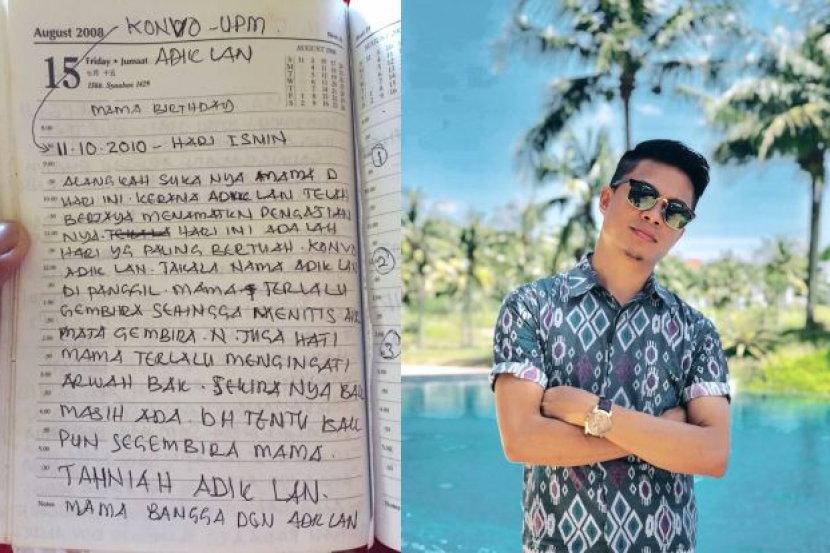 KONVO - UPM
August 2008
ADIK LAN
15 Friday • Jumaat
七月 十五
15hb. Syaaban 1429
AUGUST 2008
MAMA BIRTHDAY
11.10.2010 - HARI ISNIN
ALANGKAH SUKA NYA MAMA D
HARI INI. KERANA ADIK LAN TELAH
BERJAYA MENAMATKN PENGAJIAN
NYA. HARI INI ADA LAH
HARI YG PALING BERTUAH. KONVO
ADIK LAN. TAKALA NAMA ADIK LAN
DI PANGGIL. MAMA TERLALU
GEMBIRA SEHINGGA MENITIS AIR
MATA GEMBIRA. N JUGA HATI
MAMA TERLALU MENGINGATI
ARWAH BAK. SEKIRA NYA BAK
MASIH ADA. DH TENTU BAK
PUN SEGEMBIRA MAMA.
TAHNIAH ADIK LAN.
Notes
MAMA BANGGA DGN ADIK LAN
1
2
3